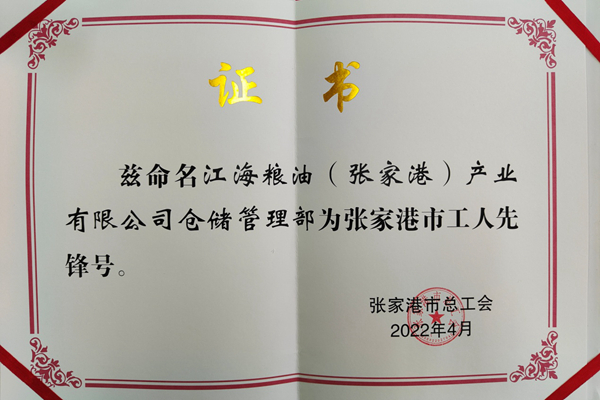 证书
兹命名江海粮油（张家港）产业
有限公司仓储管理部为张家港市工人先
锋号。
张家港市总工会
2022年4月